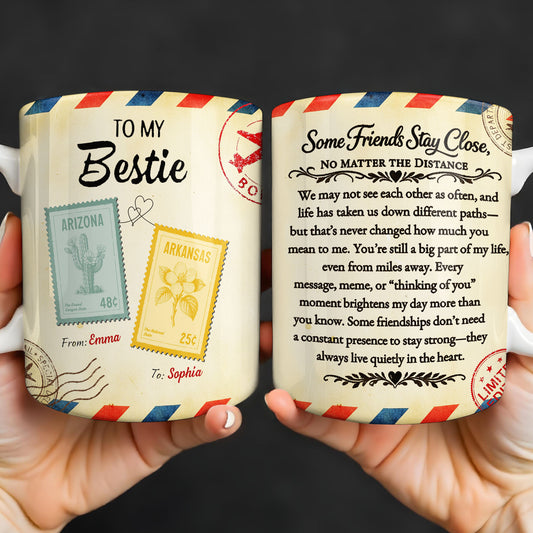 TO MY
Bestie
ARIZONA
48¢
ARKANSAS
25¢
From: Emma
To: Sophia
Some Friends Stay Close,
NO MATTER THE DISTANCE
We may not see each other as often, and
life has taken us down different paths—
but that's never changed how much you
mean to me. You're still a big part of my life,
even from miles away. Every
message, meme, or "thinking of you"
moment brightens my day more than
you know. Some friendships don't need
a constant presence to stay strong—they
always live quietly in the heart.
LIMITED